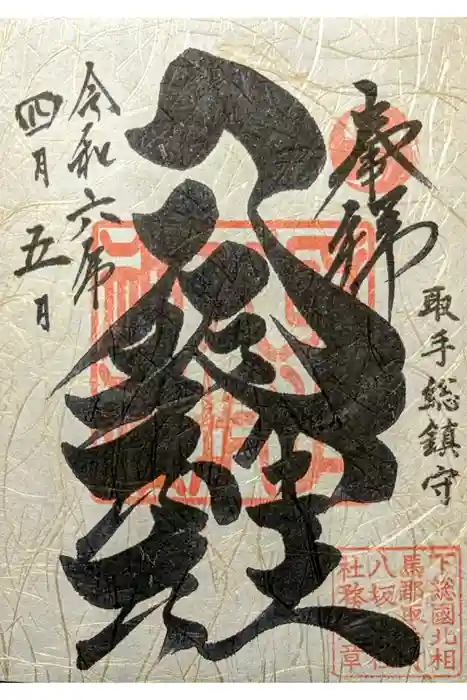 奉拝
取手総鎮守
八坂神社
令和六年
四月五日
下総國北相
馬郡取
八坂社
社務章